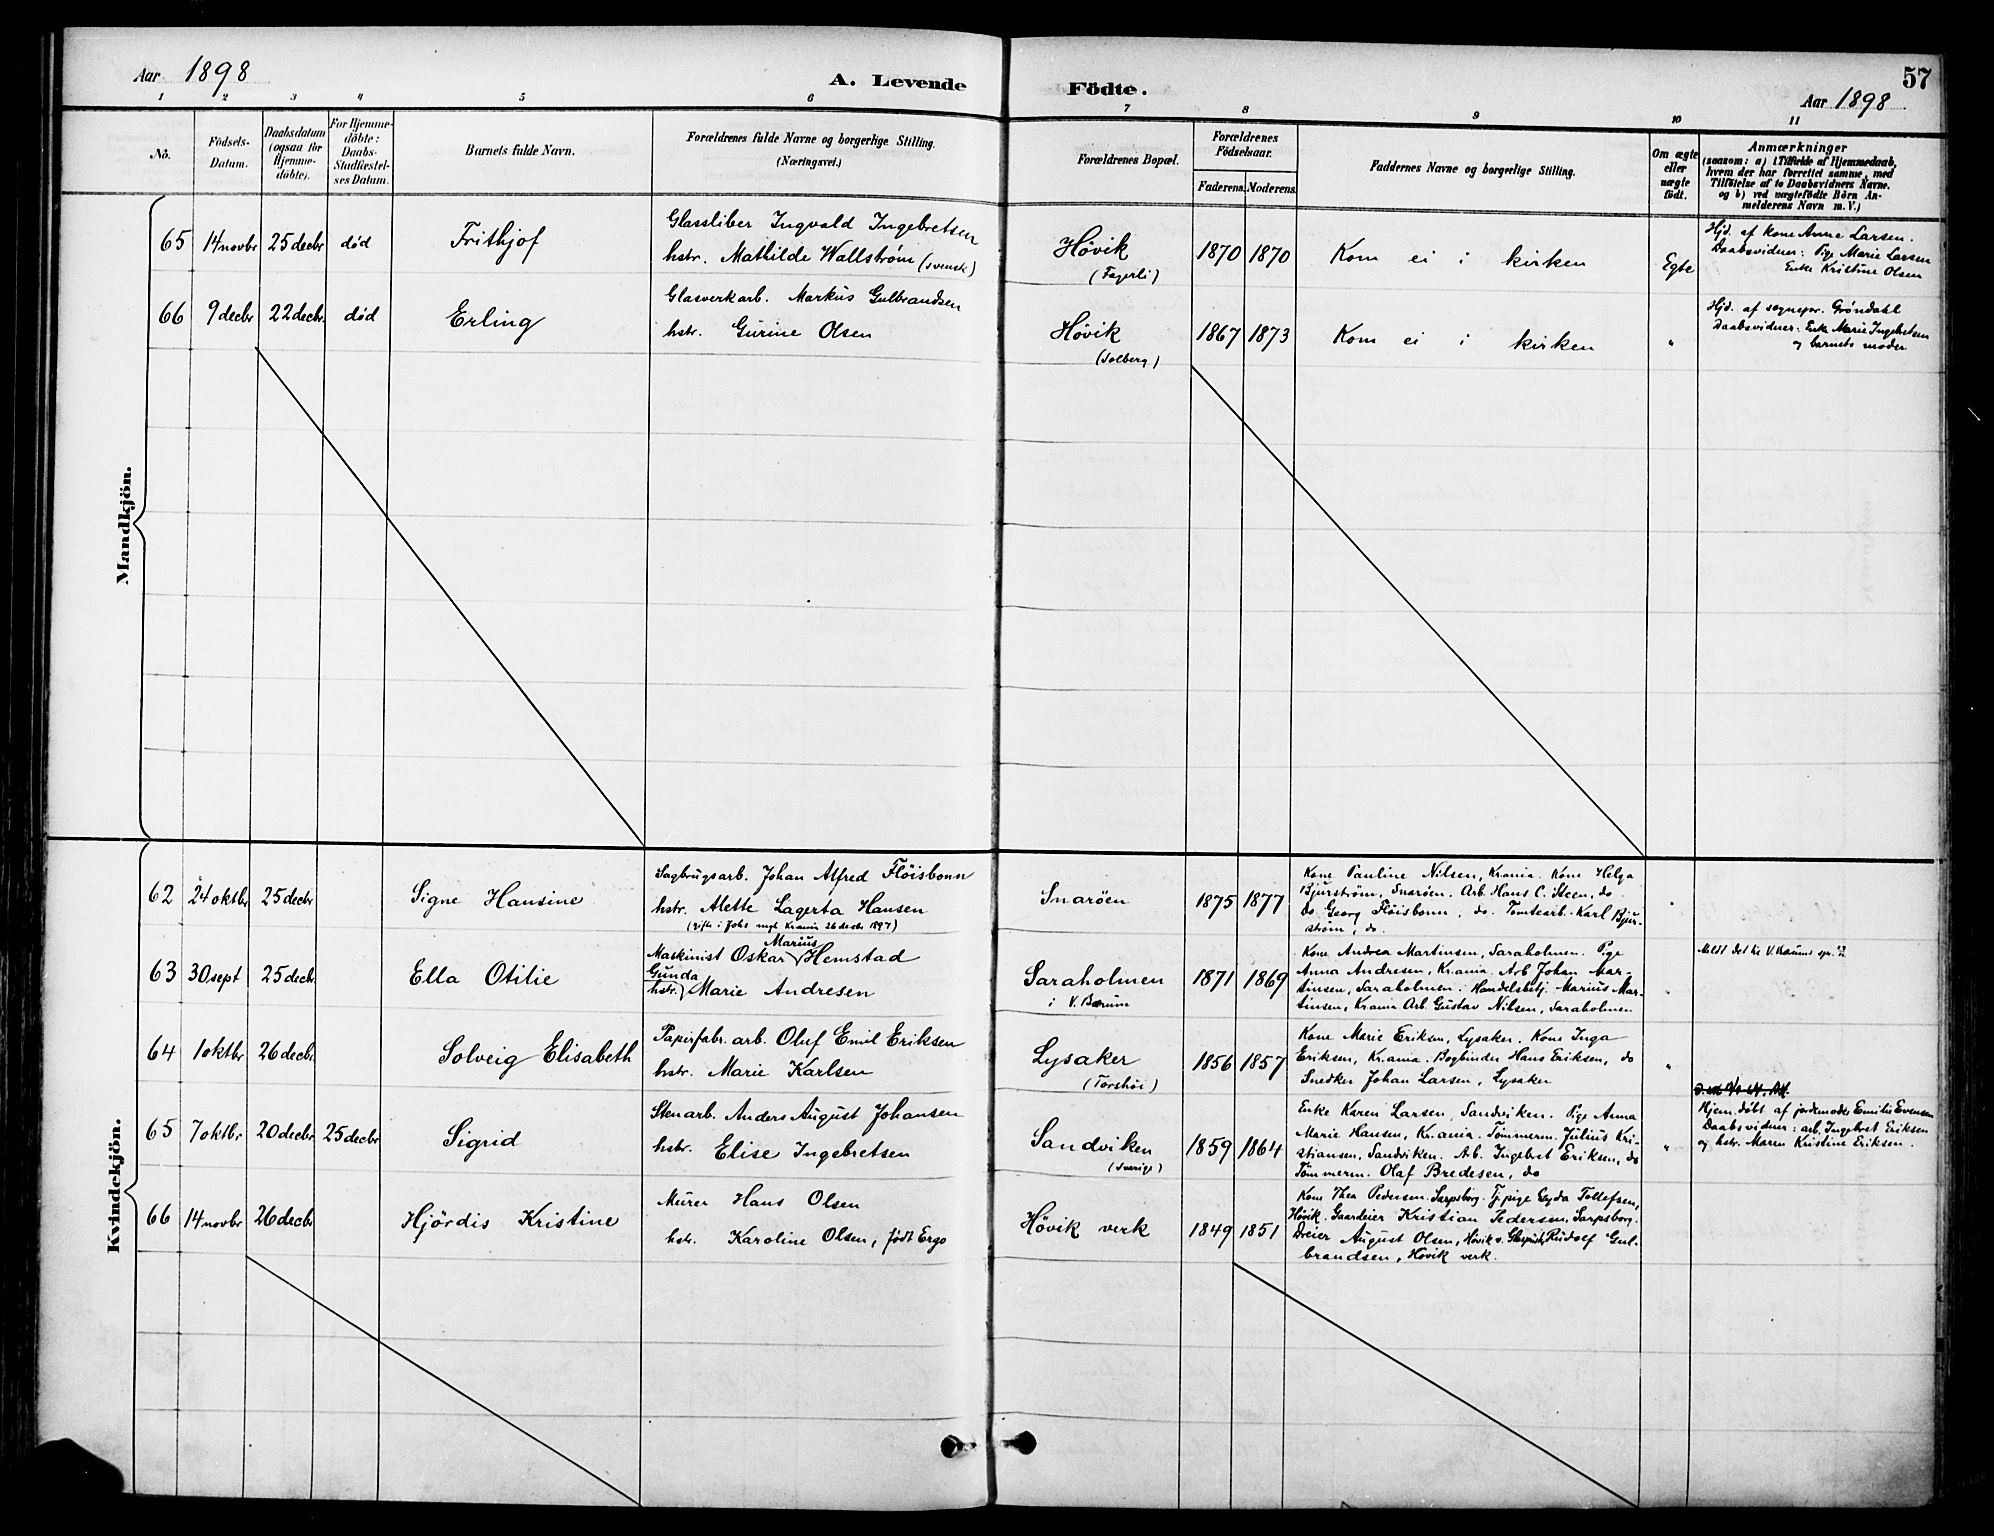 Aar 1898
A. Levende Födte.
57
Aar 1898
1 2 3 4 5 6 7 8 9 10 11
Nô.
Födsels-
Datum.
Daabsdatum
(ogsaa for
Hjemme-
döbte).
For Hjemme-
döbte:
Daabs-
Stadfæstel-
ses Datum.
Barnets fulde Navn.
Forældrenes fulde Navne og borgerlige Stilling.
(Næringsvei.)
Forældrenes Bopæl.
Forældrenes
Födselsaar.
Faderens. Moderens.
Faddernes Navne og borgerlige Stilling.
Om ægte
eller
uægte
födt.
Anmærkninger
(saasom: a) i Tilfælde af Hjemmedaab,
hvem der har forrettet samme, med
Tilföielse af to Daabsvidners Navne.
og b) ved uægtefödte Börn An-
melderens Navn m. V.)
Mandkjön.
65 14 novbr 25 decbr død Frithjof
Glassliber Ingvald Ingebretsen
hstr. Mathilde Wallstrøm (svensk)
Høvik
(Fagerli)
1870 1870
Kom ei i kirken
Egte
Hjd. af kone Anne Larsen.
Daabsvidner: Pige Marie Larsen
Enke Kristine Olsen
66 9 decbr 22 decbr. død Erling
Glasverkarb. Markus Gulbrandsen
hstr. Gurine Olsen
Høvik
(Solberg)
1867 1873
Kom ei i kirken
"
Hjd. af sognepr. Gröndahl
Daabsvidner: Enke Marie Ingebretsen
og barnets moder
Kvindekjön.
62 24 oktbr 25 decbr Signe Hansine
Sagbrugsarb. Johan Alfred Flöisbonn
hstr. Alette Lagerta Hansen
(gifte i Johs Krania 26 decbr 1897)
Snaröen
1875 1877
Kone Pauline Nilsen, Krania. Kone Helga
Bjurström, Snaröen. Arb. Hans C. Steen, do
do Georg Flöisbonn, do. Tomtearb. Karl Bjur-
ström, do.
"
63 30 sept 25 decbr. Ella Otilie
Marius
Maskinist Oskar Hemstad
Gunda
hstr. Marie Andresen
Saraholmen
i V. Bærum
1871 1869
Kone Andrea Martinsen, Saraholmen. Pige
Anna Andresen, Krania. Arb Johan Mar-
tinsen, Saraholmen. Handelsbetj. Marius Mar-
tinsen, Krania Arb. Gustav Nilsen, Saraholmen
"
Meldt det til V. Bærums spr.
64 1 oktbr 26 decbr. Solveig Elisabeth
Papirfabr. arb. Oluf Emil Eriksen
hstr. Marie Karlsen
Lysaker
(Torshöi)
1856 1857
Kone Marie Eriksen, Lysaker. Kone Inga
Eriksen, Krania. Bogbinder Hans Eriksen, do
Snedker Johan Larsen, Lysaker
"
65 7 oktbr 20 decbr 25 decbr Sigrid
Stenarb. Anders August Johansen
hstr. Elise Ingebretsen
Sandviken
(Sverige)
1859 1864
Enke Karen Larsen, Sandviken. Pige Anna
Marie Hansen, Krania. Tömmerm. Julius Kri-
stiansen, Sandviken. Arb. Ingebret Eriksen, do
Tömmerm. Olaf Bredesen, do
"
Hjem. döbt af jordemoder Emilie Evensen
Daabsvidner: arb. Ingebret Eriksen
og hstr. Maren Kristine Eriksen.
66 14 novbr 26 decbr Hjördis Kristine
Murer Hans Olsen
hstr. Karoline Olsen, født Ergo
Høvik verk
1849 1851
Kone Thea Pedersen Sarpsborg. Tj. pige Gyda Tollefsen,
Høvik. Gaardeier Kristian Pedersen, Sarpsborg.
Dreier August Olsen, Høvik v. Rudolf Gul-
brandsen, Høvik verk.